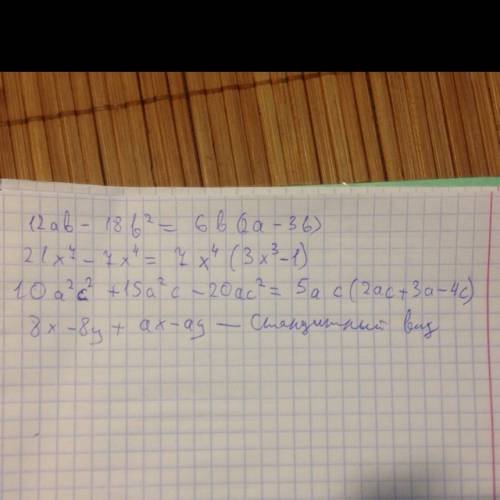 12ab - 18b² = 6b(2a - 3b)
21x⁷ - 7x⁴ = 7x⁴(3x³-1)
10a²c² + 15a²c - 20ac² = 5ac(2ac+3a-4c)
8x - 8y + ax - ay — вид